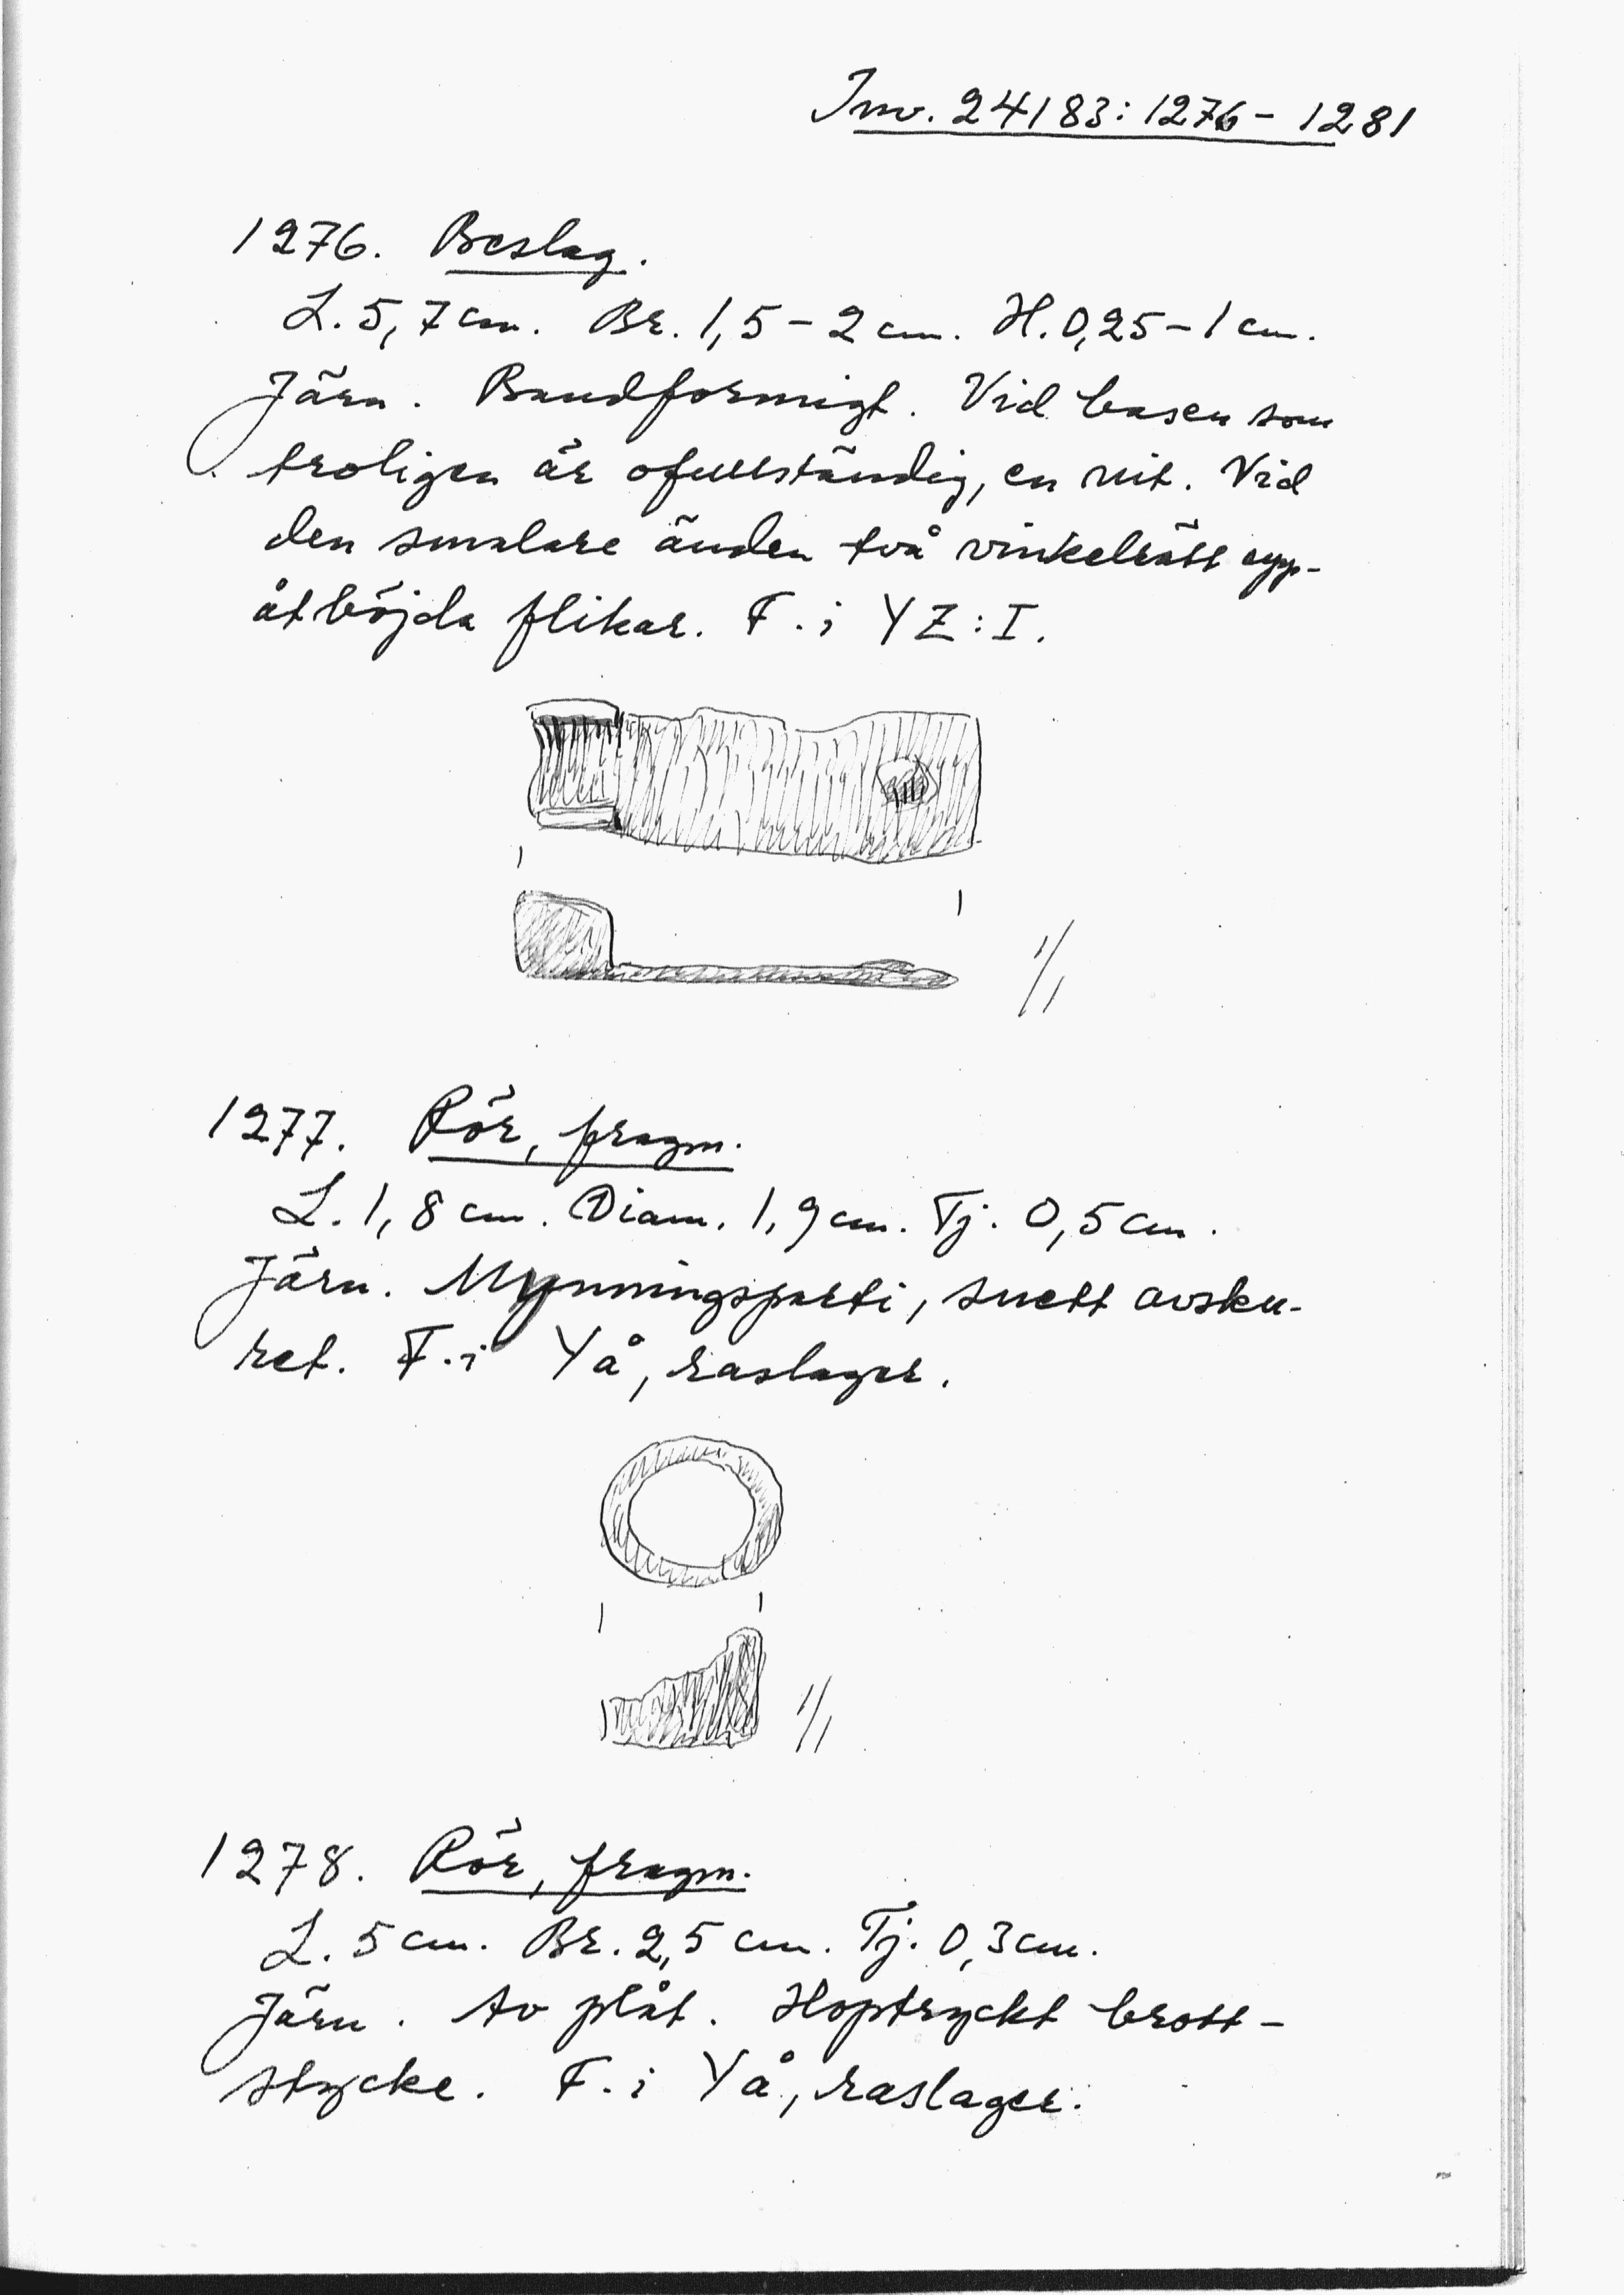 Inv. 24183:1276-1281
1276. Beslag.
L. 5,7 cm. Br. 1,5-2 cm. H. 0,25-1 cm.
Järn. Bandformigt. Vid basen som
troligen är ofullständig, en nit. Vid
den smalare änden två vinkelrätt upp-
åtböjda flikar. F. i YZ:I.
1/1
1277. Rör, fragm.
L. 1,8 cm. Diam. 1,9 cm. Tj. 0,5 cm.
Järn. Mynningsparti, snett avsku-
ret. F. i Yå, raslager.
1/1
1278. Rör, fragm.
L. 5 cm. Br. 2,5 cm. Tj. 0,3 cm.
Järn. Av plåt. Hoptryckt brott-
stycke. F. i Yå, raslager.